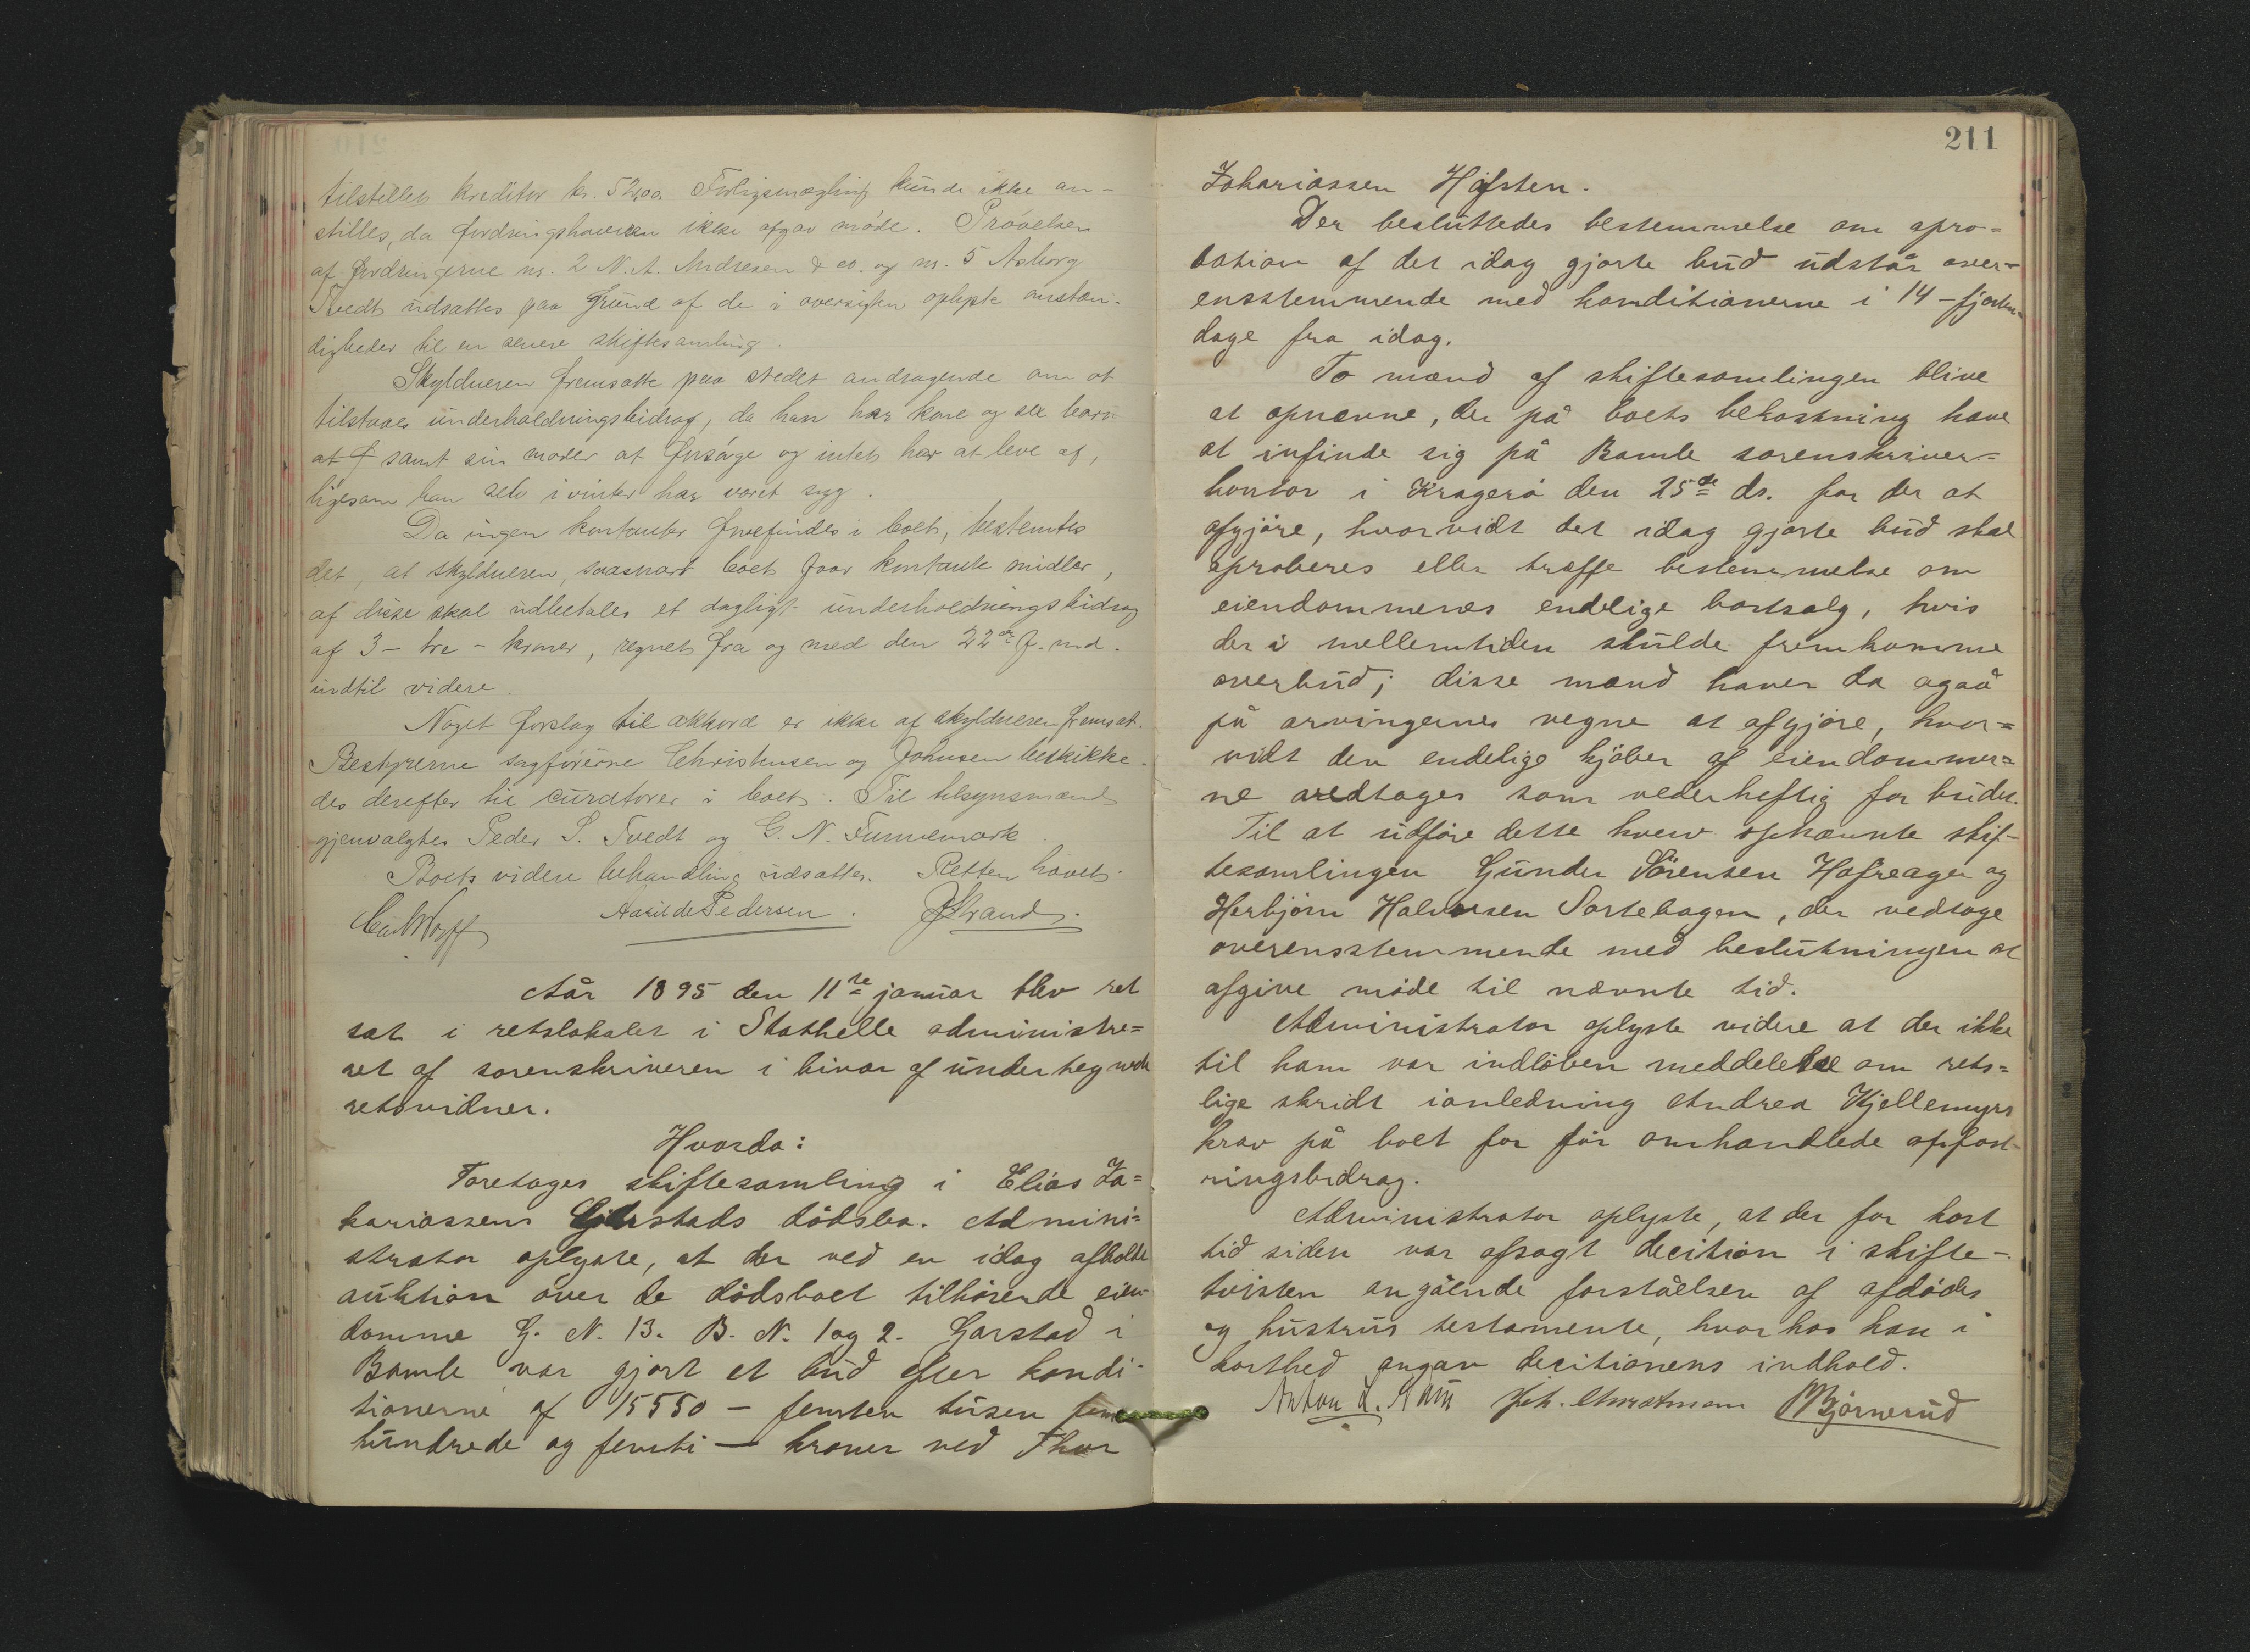 tilstillet kreditor kr. 52,00. Forligsmægling kunde ikke an-
stilles, da fordringshaveren ikke afgav møde. Prøvelsen
af fordringerne nr. 2 N. A. Andresen & co. og nr. 5 Asborg
Tvedt udsattes paa grund af de i oversigten oplyste omstæn-
digheder til en senere skiftesamling.
Skyldneren fremsatte paa stedet andragende om at
tilstaaes underholdningsbidrag, da han har kone og sex barn
at f samt sin moder at forsørge og intet har at leve af,
ligesom han selv i vinter har været syg.
Da ingen kontanter forefindes i boet, bestemtes
det, at skyldneren, saasnart boet faar kontante midler,
af disse skal udbetales et dagligt underholdningsbidrag
af 3 - tre - kroner, regnet fra og med den 22de f. md.
indtil videre.
Noget forslag til akkord er ikke af skyldneren fremsat.
Bestyrerne sagførerne Christensen og Johnsen beskikke-
des derefter til curatorer i boet. Til tilsynsmænd
gjenvalgtes Peder S. Tvedt og G. N. Funnemark
Boets videre behandling udsattes. Retten hævet.
Aasilde Pedersen. Strand.
År 1895 den 11te januar blev ret
sat i retslokalet i Stathelle administre=
ret af sorenskriveren i bivær af undertegnede
retsvidner.
Hvorda:
Foretoges skiftesamling i Elias Za=
kariassens Gjerstads dödsbo. Admini=
strator oplyste, at der ved en idag afholdt
auktion over de dödsboet tilhörende eien-
domme G. N. 13. B. N. 1 og 2. Garstad i
Bamle var gjort et bud efter kondi-
tionerne af 15550 - femten tusen fem
hundrede og femti - kroner ved Thor
211
Zakariassen Håfsten.
Der besluttedes bestemmelse om apro=
bation af det idag gjorte bud udstår over=
ensstemmende med konditionerne i 14 - fjorten-
dage fra idag.
To mænd af skiftesamlingen blive
at opnævne, der på boets bekostning have
at infinde sig på Bamle sorenskriver=
kontor i Kragerö den 25de ds. for der at
afgjöre, hvorvidt det idag gjorte bud skal
aproberes eller træffe bestemmelse om
eiendommenes endelige bortsalg, hvis
der i mellemtiden skulde fremkomme
overbud; disse mænd haver da også
på arvingernes vegne at afgjöre, hvor=
vidt den endelige kjöber af eiendommer=
ne vedtages som vederheftig for budet.
Til at udföre dette hverv opnævnte skif-
tesamlingen Gunder Sörensen Hafreager og
Herbjörn Halvorsen Sortebogen, der vedtoge
overensstemmende med beslutningen at
afgive möde til nævnte tid.
Administrator oplyste videre at der ikke
til ham var indlöben meddelelse om rets=
lige skridt ianledning Andrea Kjellemyrs
krav på boet for för omhandlede opfost-
ringsbidrag.
Administrator oplyste, at der for kort
tid siden var afsagt decition i skifte-
tvisten angående forståelsen af afdödes
og hustrus testamente, hvorhos han i
korthed angav decitionens indhold.
Bjørnerud